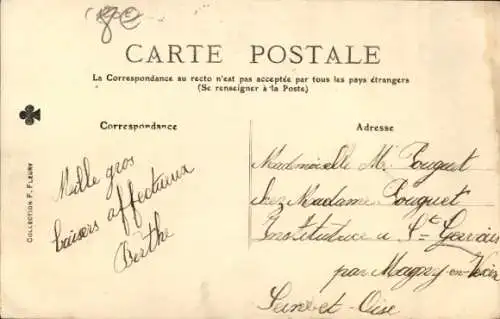 CARTE POSTALE
La Correspondance au recto n'est pas acceptée par tous les pays étrangers
(Se renseigner à la Poste)
Correspondance
Adresse
COLLECTION F. FLEURY
Mille gros
baisers affectueux
Berthe
Mademoiselle M. Pouguet
chez Madame Pouguet
Institutrice a St Gervais
par Magny-en-Vexin
Seine-et-Oise